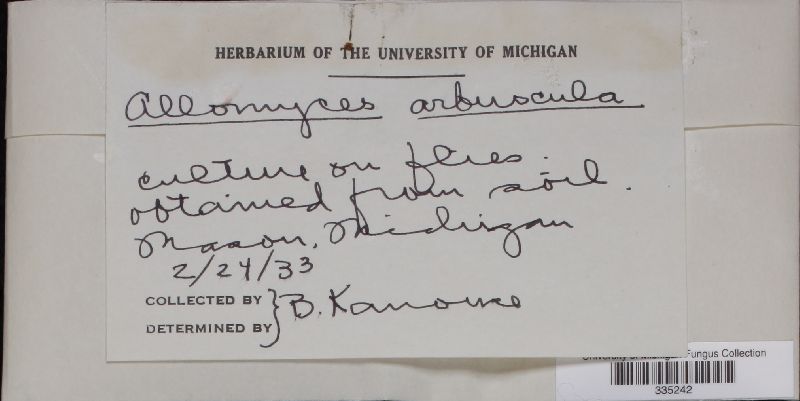 HERBARIUM OF THE UNIVERSITY OF MICHIGAN
Allomyces arbuscula
culture on flies.
obtained from soil.
Mason, Michigan
2/24/33
COLLECTED BY } B. Kanouse
DETERMINED BY
University of Michigan Fungus Collection
335242